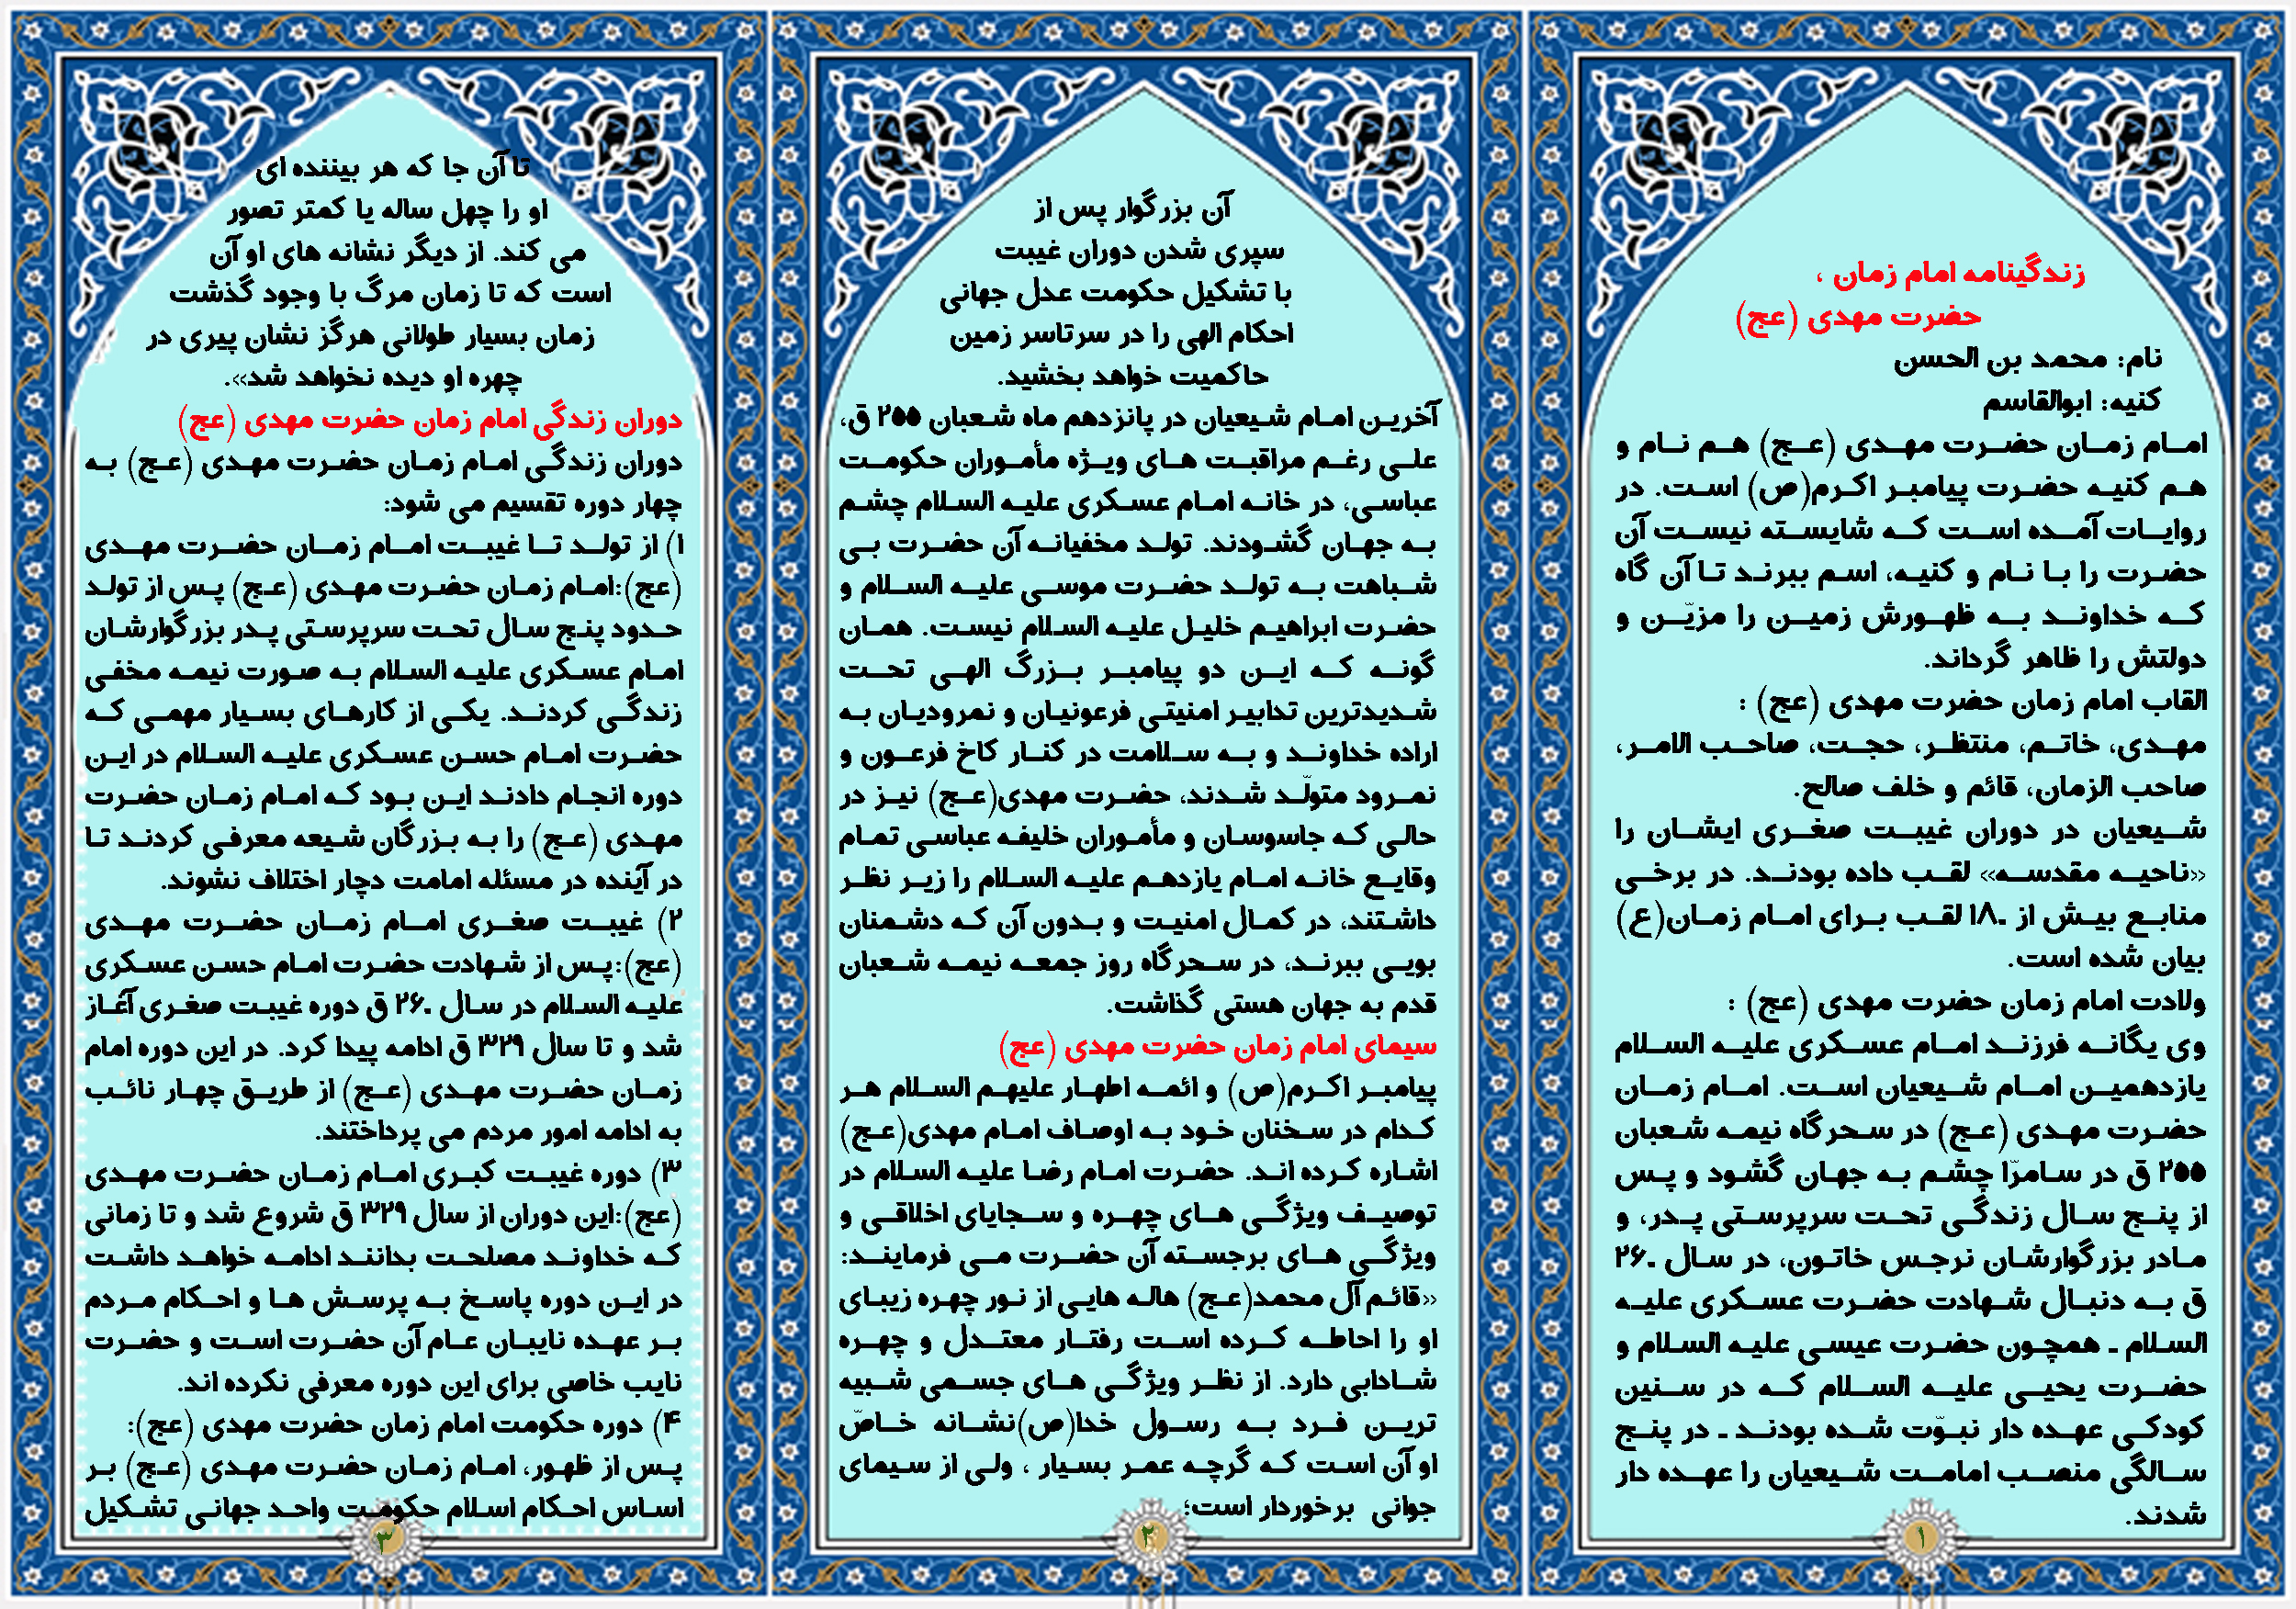 زندگینامه امام زمان ،
حضرت مهدی (عج)
نام: محمد بن الحسن
کنیه: ابوالقاسم
امام زمان حضرت مهدی (عج) هم نام و
هم کنیه حضرت پیامبر اکرم(ص) است. در
روایات آمده است که شایسته نیست آن
حضرت را با نام و کنیه، اسم ببرند تا آن گاه
که خداوند به ظهورش زمین را مزیّن و
دولتش را ظاهر گرداند.
القاب امام زمان حضرت مهدی (عج) :
مهدی، خاتم، منتظر، حجت، صاحب الامر،
صاحب الزمان، قائم و خلف صالح.
شیعیان در دوران غیبت صغری ایشان را
«ناحیه مقدسه» لقب داده بودند. در برخی
منابع بیش از ۱۸۰ لقب برای امام زمان(ع)
بیان شده است.
ولادت امام زمان حضرت مهدی (عج) :
وی یگانه فرزند امام عسکری علیه السلام
یازدهمین امام شیعیان است. امام زمان
حضرت مهدی (عج) در سحرگاه نیمه شعبان
۲۵۵ ق در سامرّا چشم به جهان گشود و پس
از پنج سال زندگی تحت سرپرستی پدر، و
مادر بزرگوارشان نرجس خاتون، در سال ۲۶۰
ق به دنبال شهادت حضرت عسکری علیه
السلام ـ همچون حضرت عیسی علیه السلام و
حضرت یحیی علیه السلام که در سنین
کودکی عهده دار نبوّت شده بودند ـ در پنج
سالگی منصب امامت شیعیان را عهده دار
شدند.
۱
آن بزرگوار پس از
سپری شدن دوران غیبت
با تشکیل حکومت عدل جهانی
احکام الهی را در سرتاسر زمین
حاکمیت خواهد بخشید.
آخرین امام شیعیان در پانزدهم ماه شعبان ۲۵۵ ق،
علی رغم مراقبت های ویژه مأموران حکومت
عباسی، در خانه امام عسکری علیه السلام چشم
به جهان گشودند. تولد مخفیانه آن حضرت بی
شباهت به تولد حضرت موسی علیه السلام و
حضرت ابراهیم خلیل علیه السلام نیست. همان
گونه که این دو پیامبر بزرگ الهی تحت
شدیدترین تدابیر امنیتی فرعونیان و نمرودیان به
اراده خداوند و به سلامت در کنار کاخ فرعون و
نمرود متولّد شدند، حضرت مهدی(عج) نیز در
حالی که جاسوسان و مأموران خلیفه عباسی تمام
وقایع خانه امام یازدهم علیه السلام را زیر نظر
داشتند، در کمال امنیت و بدون آن که دشمنان
بویی ببرند، در سحرگاه روز جمعه نیمه شعبان
قدم به جهان هستی گذاشت.
سیمای امام زمان حضرت مهدی (عج)
پیامبر اکرم(ص) و ائمه اطهار علیهم السلام هر
کدام در سخنان خود به اوصاف امام مهدی(عج)
اشاره کرده اند. حضرت امام رضا علیه السلام در
توصیف ویژگی های چهره و سجایای اخلاقی و
ویژگی های برجسته آن حضرت می فرمایند:
«قائم آل محمد(عج) هاله هایی از نور چهره زیبای
او را احاطه کرده است رفتار معتدل و چهره
شادابی دارد. از نظر ویژگی های جسمی شبیه
ترین فرد به رسول خدا(ص)نشانه خاصّ
او آن است که گرچه عمر بسیار ، ولی از سیمای
جوانی برخوردار است؛
۲
تا آن جا که هر بیننده ای
او را چهل ساله یا کمتر تصور
می کند. از دیگر نشانه های او آن
است که تا زمان مرگ با وجود گذشت
زمان بسیار طولانی هرگز نشان پیری در
چهره او دیده نخواهد شد».
دوران زندگی امام زمان حضرت مهدی (عج)
دوران زندگی امام زمان حضرت مهدی (عج) به
چهار دوره تقسیم می شود:
۱) از تولد تا غیبت امام زمان حضرت مهدی
(عج):امام زمان حضرت مهدی (عج) پس از تولد
حدود پنج سال تحت سرپرستی پدر بزرگوارشان
امام عسکری علیه السلام به صورت نیمه مخفی
زندگی کردند. یکی از کارهای بسیار مهمی که
حضرت امام حسن عسکری علیه السلام در این
دوره انجام دادند این بود که امام زمان حضرت
مهدی (عج) را به بزرگان شیعه معرفی کردند تا
در آینده در مسئله امامت دچار اختلاف نشوند.
۲) غیبت صغری امام زمان حضرت مهدی
(عج):پس از شهادت حضرت امام حسن عسکری
علیه السلام در سال ۲۶۰ ق دوره غیبت صغری آغاز
شد و تا سال ۳۲۹ ق ادامه پیدا کرد. در این دوره امام
زمان حضرت مهدی (عج) از طریق چهار نائب
به ادامه امور مردم می پرداختند.
۳) دوره غیبت کبری امام زمان حضرت مهدی
(عج):این دوران از سال ۳۲۹ ق شروع شد و تا زمانی
که خداوند مصلحت بدانند ادامه خواهد داشت
در این دوره پاسخ به پرسش ها و احکام مردم
بر عهده نایبان عام آن حضرت است و حضرت
نایب خاصی برای این دوره معرفی نکرده اند.
۴) دوره حکومت امام زمان حضرت مهدی (عج):
پس از ظهور، امام زمان حضرت مهدی (عج) بر
اساس احکام اسلام حکومت واحد جهانی تشکیل
۳